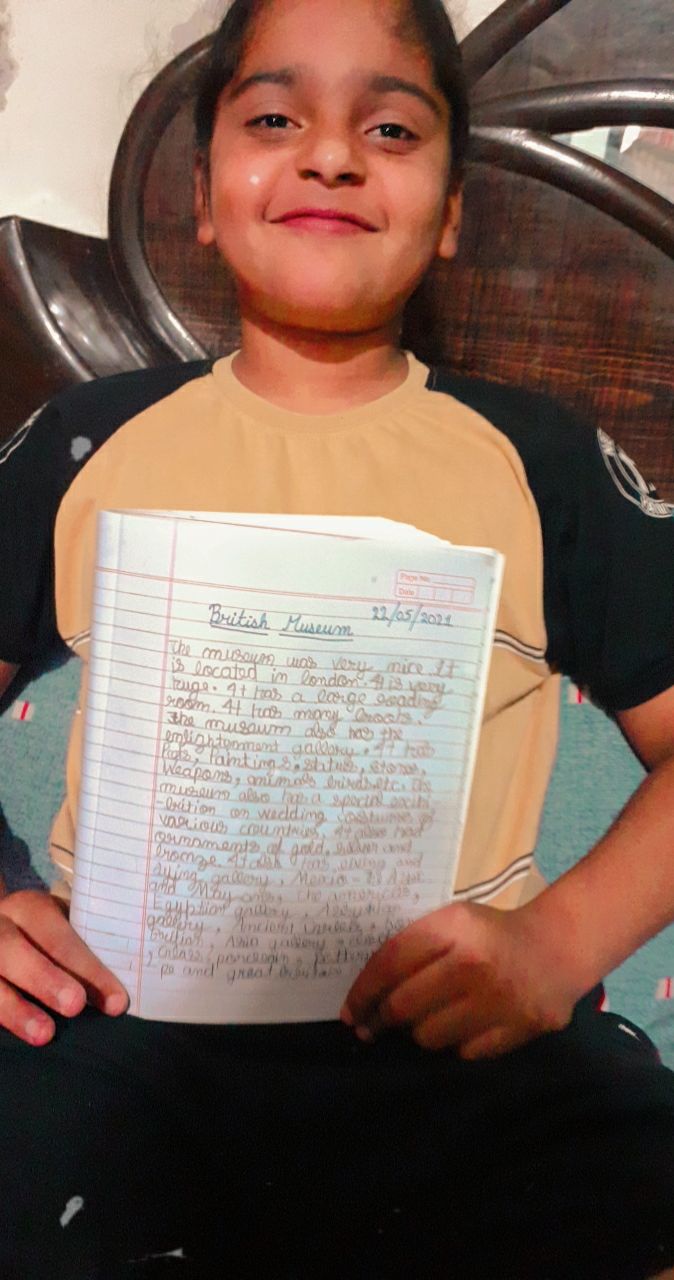 Page No.
Date
British Museum 22/05/2021
The museum was very nice. It
is located in london. It is very
huge. It has a large reading
room. It has many books.
The museum also has the
enlightenment gallery. It has
Paintings, status, stones,
Weapons, animals birds etc. The
museum also has a special exihi
-bition on wedding costumes of
various countries, It also had
ornaments of gold, silver and
bronze. It also has living and
dying gallery, Mexico -
and May the americas,
Egyptian gallery,
gallery, Ancient
Asia gallery,
, Glass, porcelain,
pe and great